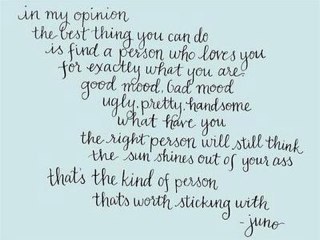 in my opinion
the best thing you can do
is find a person who loves you
for exactly what you are.
good mood, bad mood
ugly, pretty, handsome
what have you
the right person will still think
the sun shines out of your ass
that's the kind of person
thats worth sticking with
-juno-